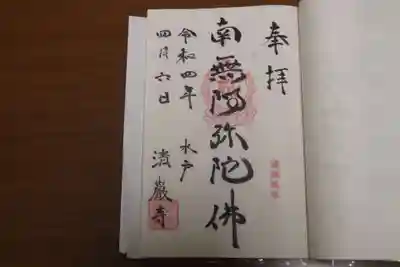 奉拝
南無阿弥陀佛
水戸 清巖寺
令和四年
四月六日